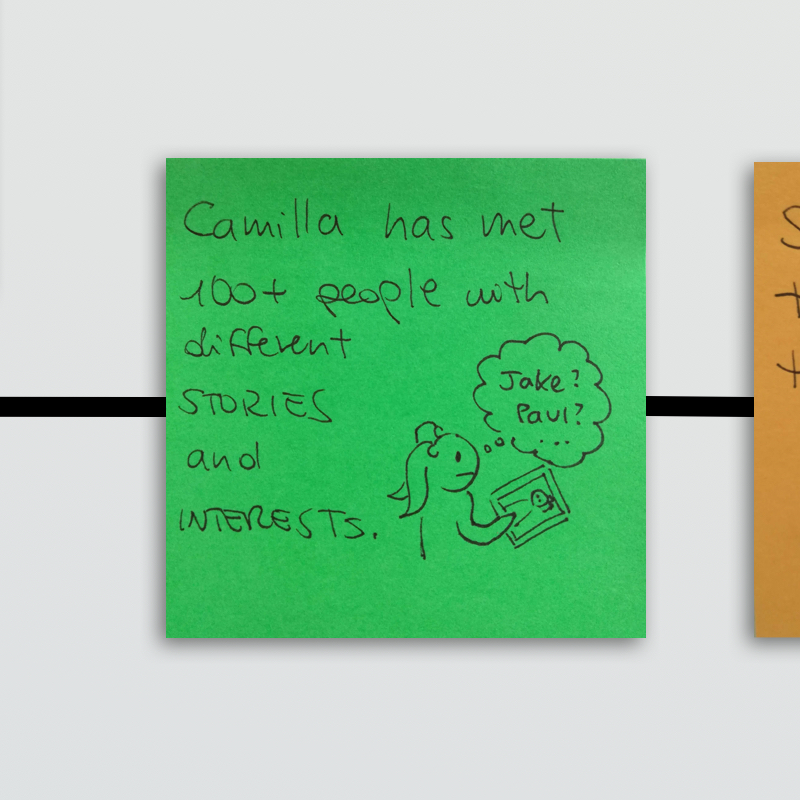 Camilla has met
100+ people with
different
STORIES
and
INTERESTS.
Jake?
Paul?
...